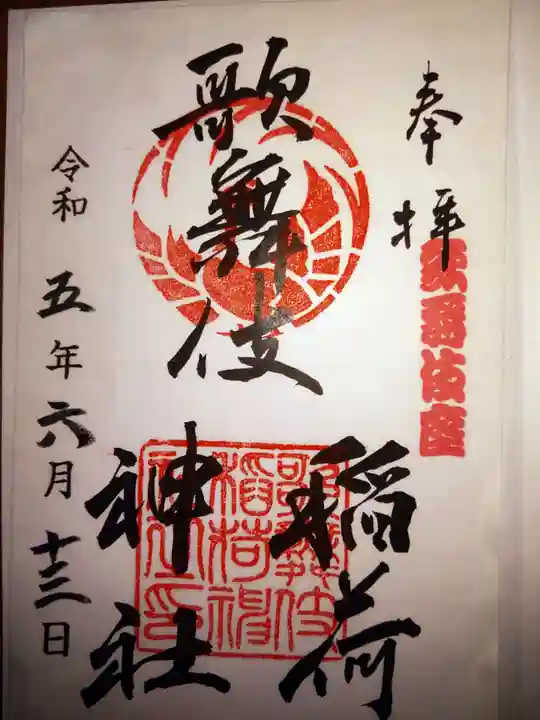 奉拝
歌舞伎座
歌舞伎
稲荷
神社
歌舞伎
稲荷神
社之印
令和五年六月十三日